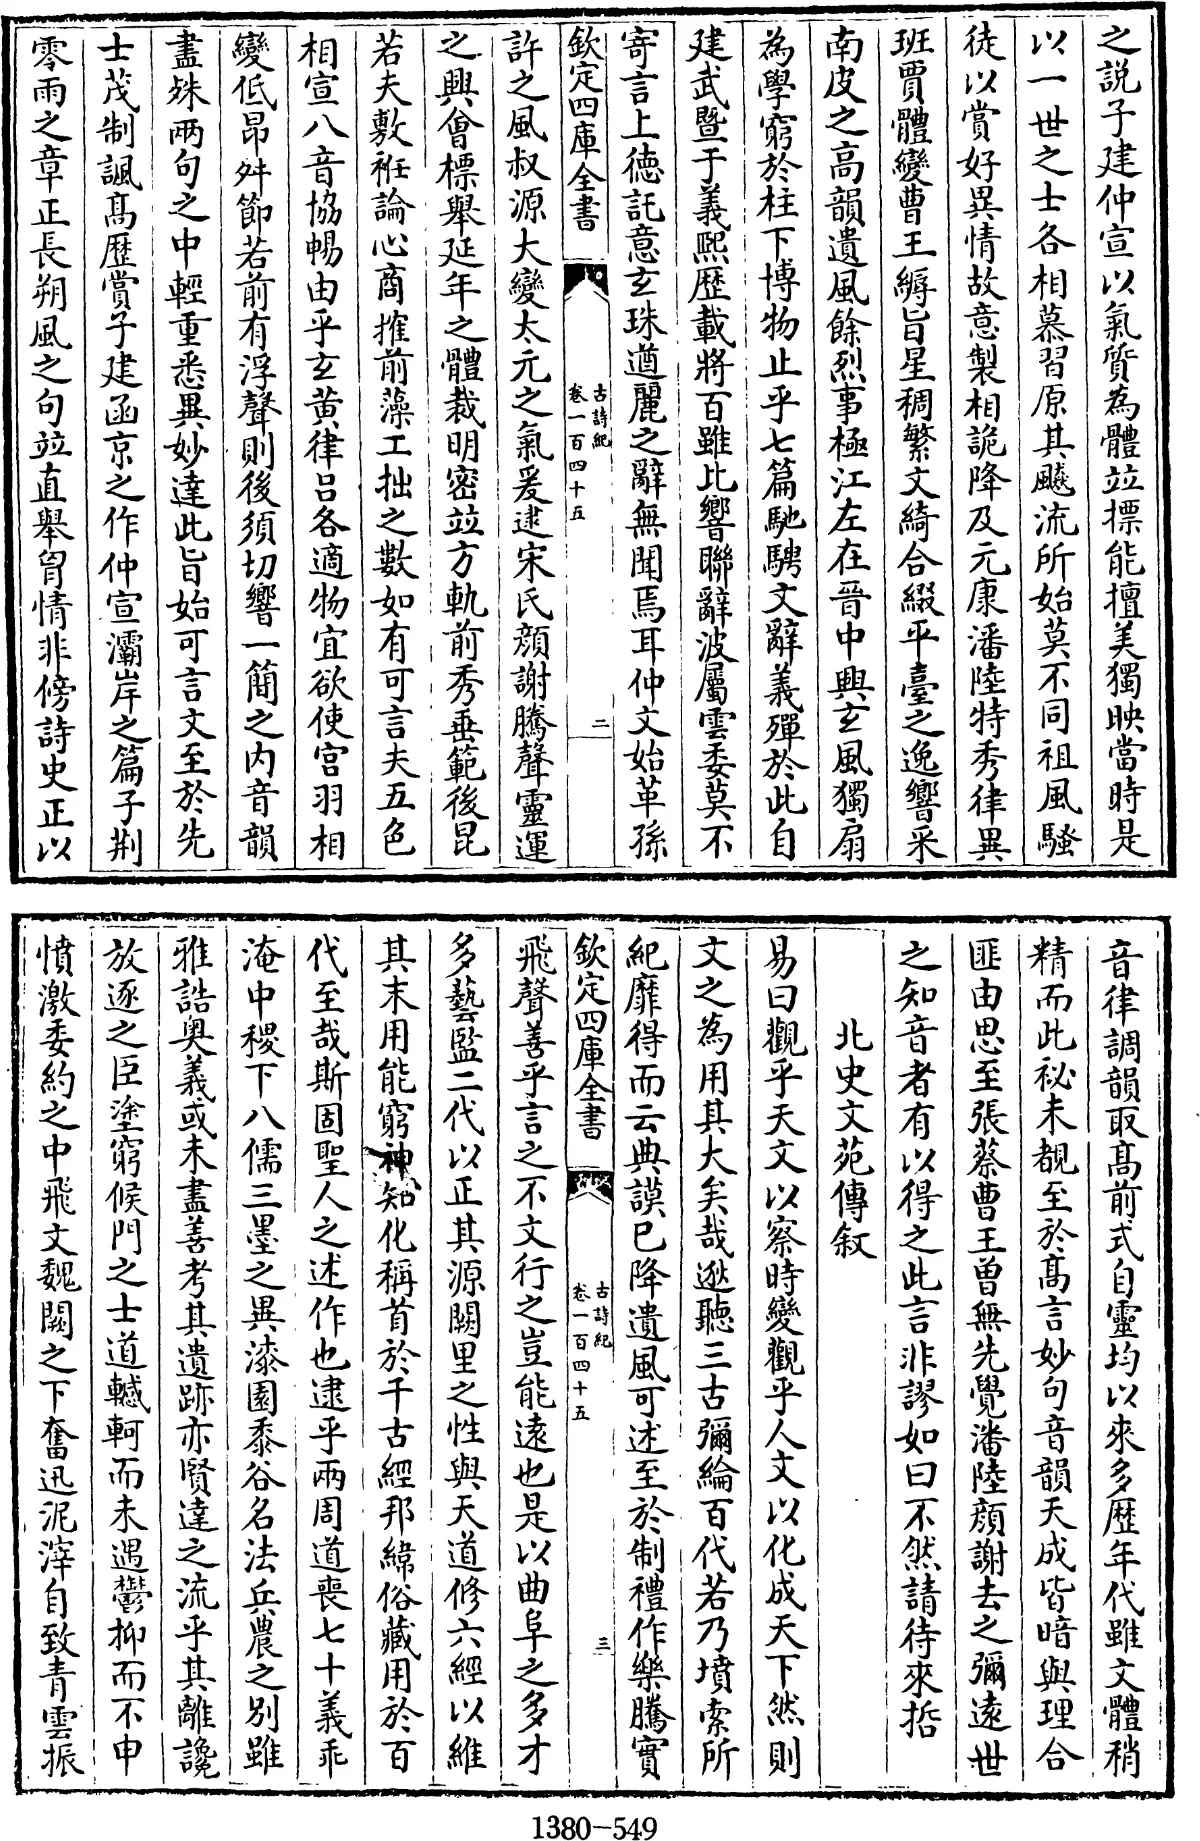 之說子建仲宣以氣質為體竝摽能擅美獨映當時是
以一世之士各相慕習原其飈流所始莫不同祖風騷
徒以賞好異情故意製相詭降及元康潘陸特秀律異
班賈體變曹王縟旨星稠繁文綺合綴平臺之逸響采
南皮之高韻遺風餘烈事極江左在晉中興玄風獨扇
為學窮於柱下博物止乎七篇馳騁文辭義殫於此自
建武暨于義熙歷載將百雖比響聯辭波屬雲委莫不
寄言上德託意玄珠遒麗之辭無聞焉耳仲文始革孫
欽定四庫全書
古詩紀
卷一百四十五
二
許之風叔源大變太元之氣爰逮宋氏顔謝騰聲靈運
之興會標舉延年之體裁明密竝方軌前秀垂範後昆
若夫敷衽論心商搉前藻工拙之數如有可言夫五色
相宣八音協暢由乎玄黄律吕各適物宜欲使宫羽相
變低昂舛節若前有浮聲則後須切響一簡之内音韻
盡殊兩句之中輕重悉異妙達此旨始可言文至於先
士茂制諷髙歷賞子建函京之作仲宣灞岸之篇子荆
零雨之章正長朔風之句竝直舉胷情非傍詩史正以
音律調韻取髙前式自靈均以來多歷年代雖文體稍
精而此祕未覩至於髙言妙句音韻天成皆暗與理合
匪由思至張蔡曹王曽無先覺潘陸顔謝去之彌逺世
之知音者有以得之此言非謬如曰不然請待來哲
北史文苑傳叙
易曰觀乎天文以察時變觀乎人文以化成天下然則
文之為用其大矣哉逖聽三古彌綸百代若乃墳索所
紀靡得而云典謨已降遺風可述至於制禮作樂騰實
欽定四庫全書
古詩紀
卷一百四十五
三
飛聲善乎言之不文行之豈能逺也是以曲阜之多才
多藝監二代以正其源闕里之性與天道修六經以維
其末用能窮神知化稱首於千古經邦緯俗藏用於百
代至哉斯固聖人之述作也逮乎兩周道喪七十義乖
淹中稷下八儒三墨之異漆園黍谷名法兵農之别雖
雅誥奥義或未盡善考其遺跡亦賢達之流乎其離讒
放逐之臣塗窮候門之士道轗軻而未遇鬱抑而不申
憤激委約之中飛文魏闕之下奮迅泥滓自致青雲振
1380-549